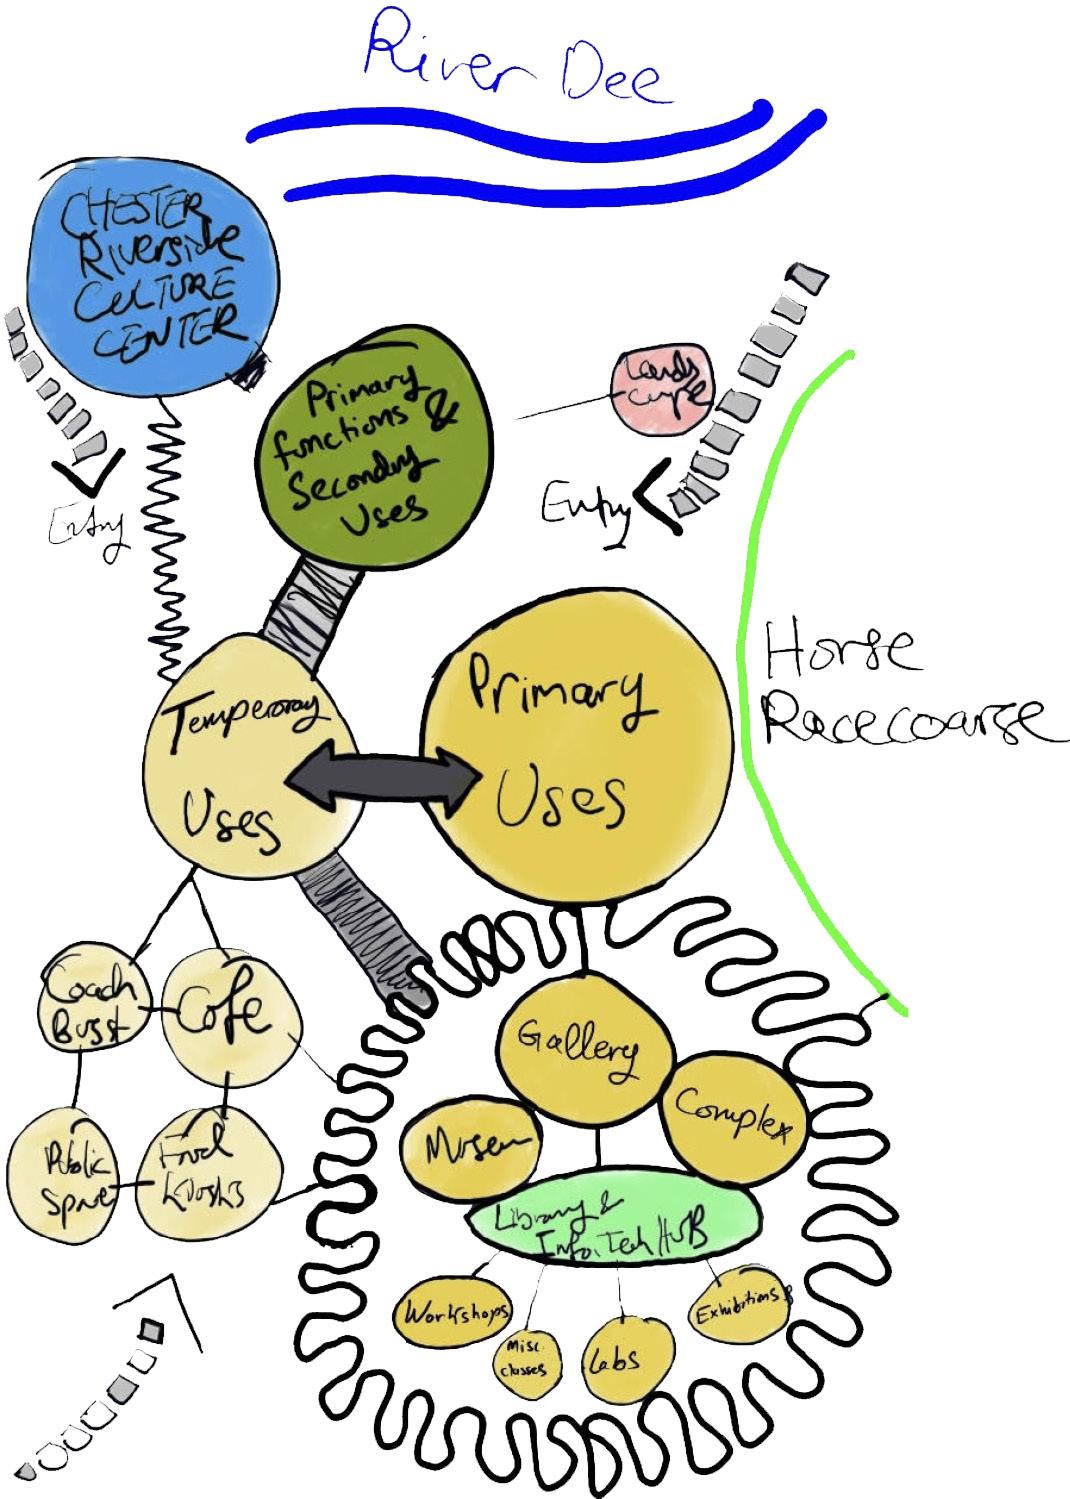 River Dee
CHESTER
Riverside
CULTURE
CENTER
Primary
functions &
Secondary
Uses
Lands
cape
Entry
Entry
Horse
Racecoarse
Temperoray
Uses
Primary
Uses
Coach
Cafe
Public
Space
Food
kiosks
Gallery
Complex
Museum
Library &
Info. Tech HUB
Workshops
Misc.
classes
Labs
Exhibitions